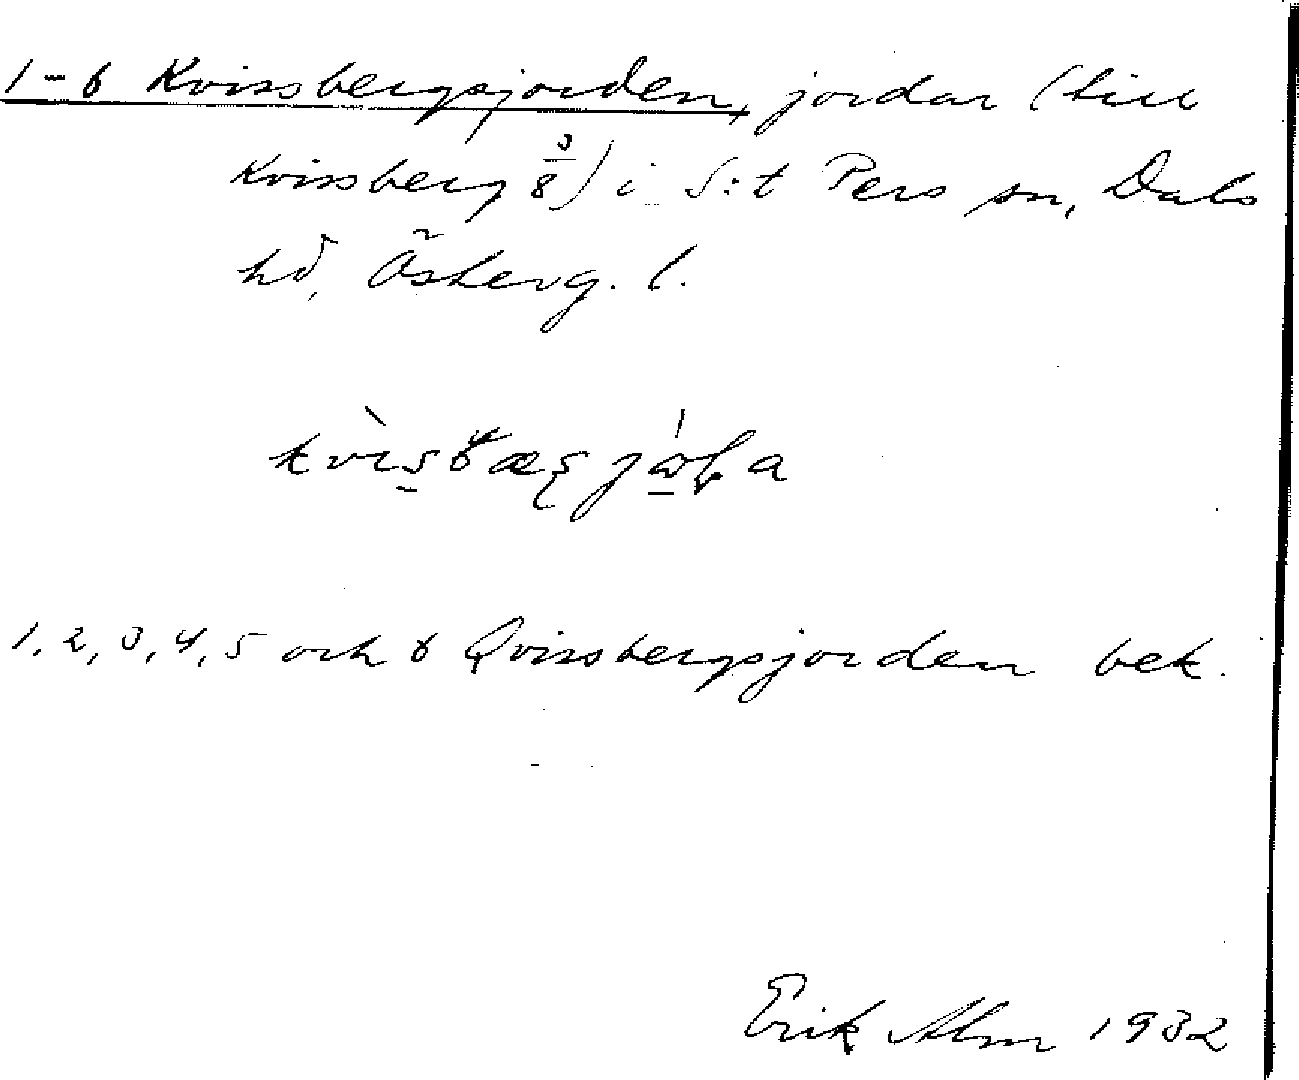 1-6 Kvissbergsjorden, jordar (till
Kvissberg 3/8) i S:t Pers sn, Dals
hd, Österg. l.
1, 2, 3, 4, 5 och 6 Qvissbergsjorden bek.
Erik Alm 1932